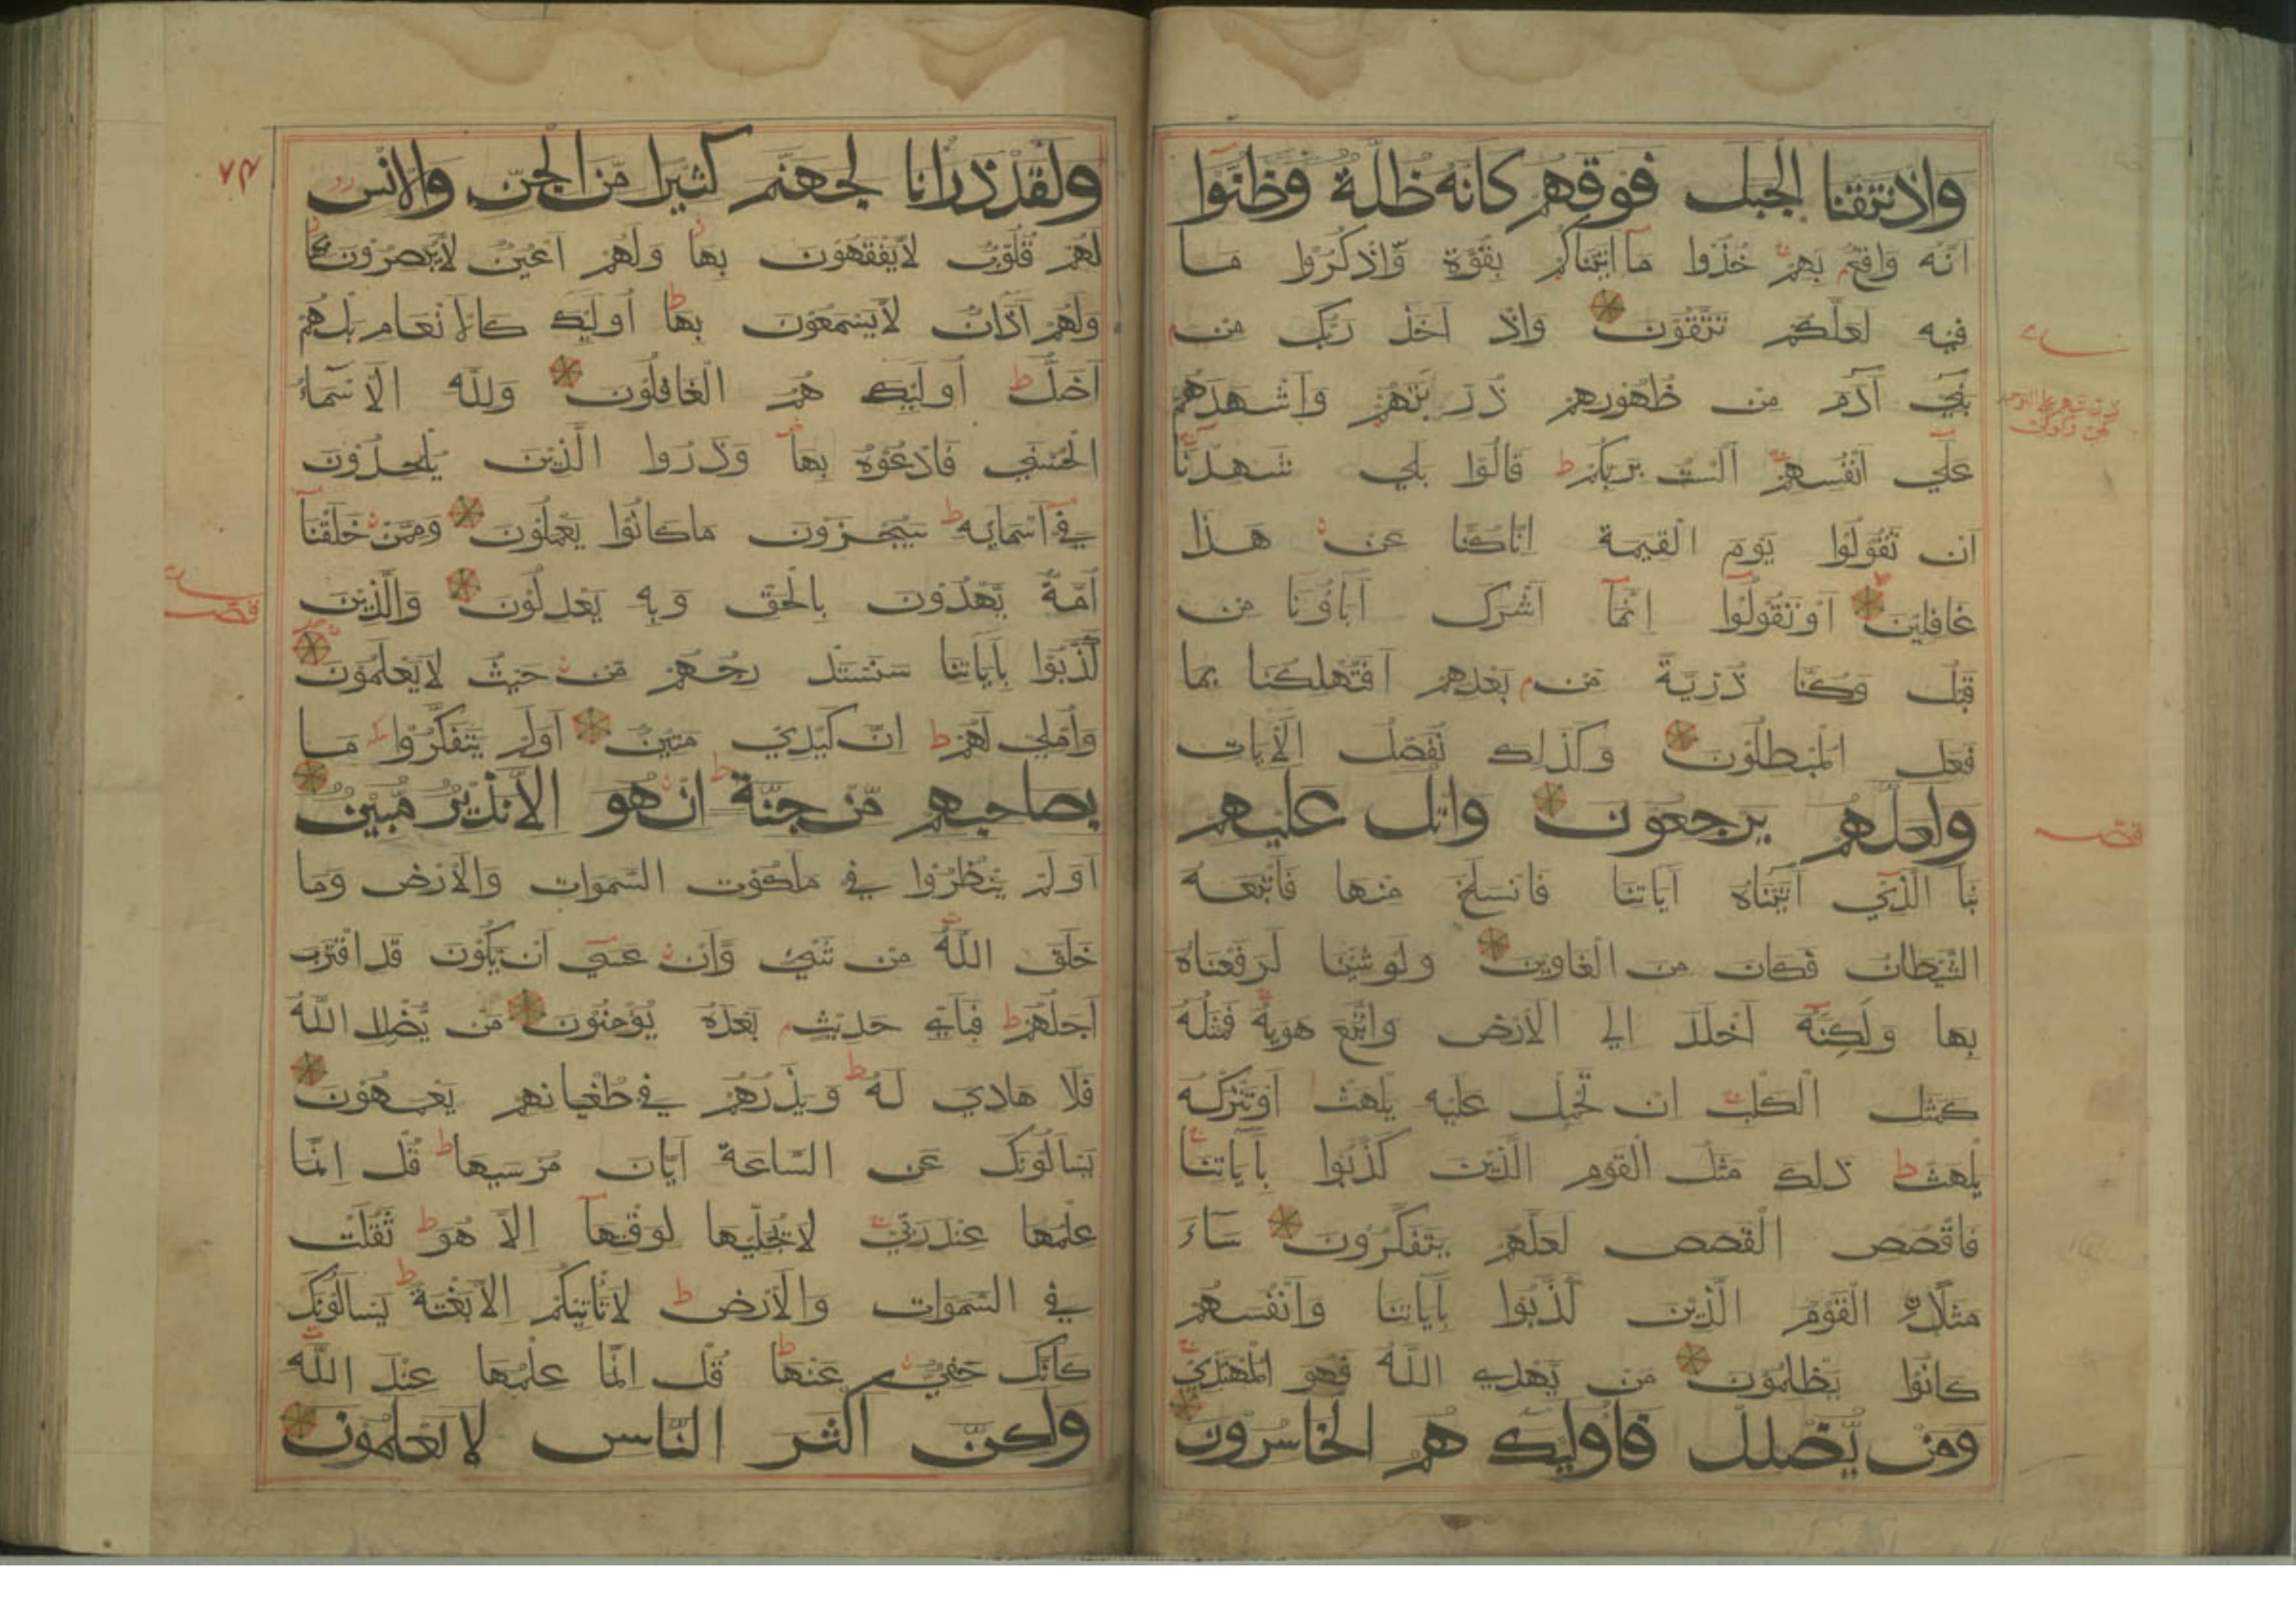 واذ نتقنا الجبل فوقهم كانه ظلة وظنوا
انه واقع بهم خذوا ما اتيناكم بقوة واذكروا ما
فيه لعلكم تتقون واذ اخذ ربك من
بني آدم من ظهورهم ذريتهم واشهدهم
علي انفسهم الست بربكم قالوا بلي شهدنا
ان تقولوا يوم القيمة انا كنا عن هذا
غافلين او تقولوا انما اشرك اباؤنا من
قبل وكنا ذرية من بعدهم افتهلكنا بما
فعل المبطلون وكذلك نفصل الايات
ولعلهم يرجعون واتل عليهم
نبا الذي اتيناه اياتنا فانسلخ منها فاتبعه
الشيطان فكان من الغاوين ولو شئنا لرفعناه
بها ولكنه اخلد الي الارض واتبع هويه فمثله
كمثل الكلب ان تحمل عليه يلهث او تتركه
يلهث ذلك مثل القوم الذين كذبوا باياتنا
فاقصص القصص لعلهم يتفكرون ساء
مثلا القوم الذين كذبوا باياتنا وانفسهم
كانوا يظلمون من يهد الله فهو المهتدي
ومن يضلل فاوليك هم الخاسرون
قصـ
٧٣
ولقد ذرانا لجهنم كثيرا من الجن والانس
لهم قلوب لا يفقهون بها ولهم اعين لا يبصرون بها
ولهم اذان لا يسمعون بها اوليك كالانعام بل هم
اضل اوليك هم الغافلون ولله الاسماء
الحسني فادعوه بها وذروا الذين يلحدون
في اسمايه سيجزون ما كانوا يعملون وممن خلقنا
امة يهدون بالحق وبه يعدلون والذين
كذبوا باياتنا سنستدرجهم من حيث لا يعلمون
واملي لهم ان كيدي متين اولم يتفكروا ما
بصاحبهم من جنة ان هو الا نذير مبين
اولم ينظروا في ملكوت السموات والارض وما
خلق الله من شيء وان عسي ان يكون قد اقترب
اجلهم فباي حديث بعده يؤمنون من يضلل الله
فلا هادي له ويذرهم في طغيانهم يعمهون
يسالونك عن الساعة ايان مرسيها قل انما
علمها عند ربي لا يجليها لوقتها الا هو ثقلت
في السموات والارض لا تاتيكم الا بغتة يسالونك
كانك حفي عنها قل انما علمها عند الله
ولكن اكثر الناس لا يعلمون
قصـ